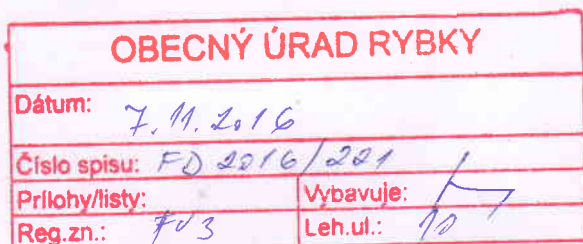 OBECNÝ ÚRAD RYBKY
Dátum: 7.11.2016
Číslo spisu: FD 2016/221
Prílohy/listy: Vybavuje:
Reg.zn.: Leh.ul.: 10